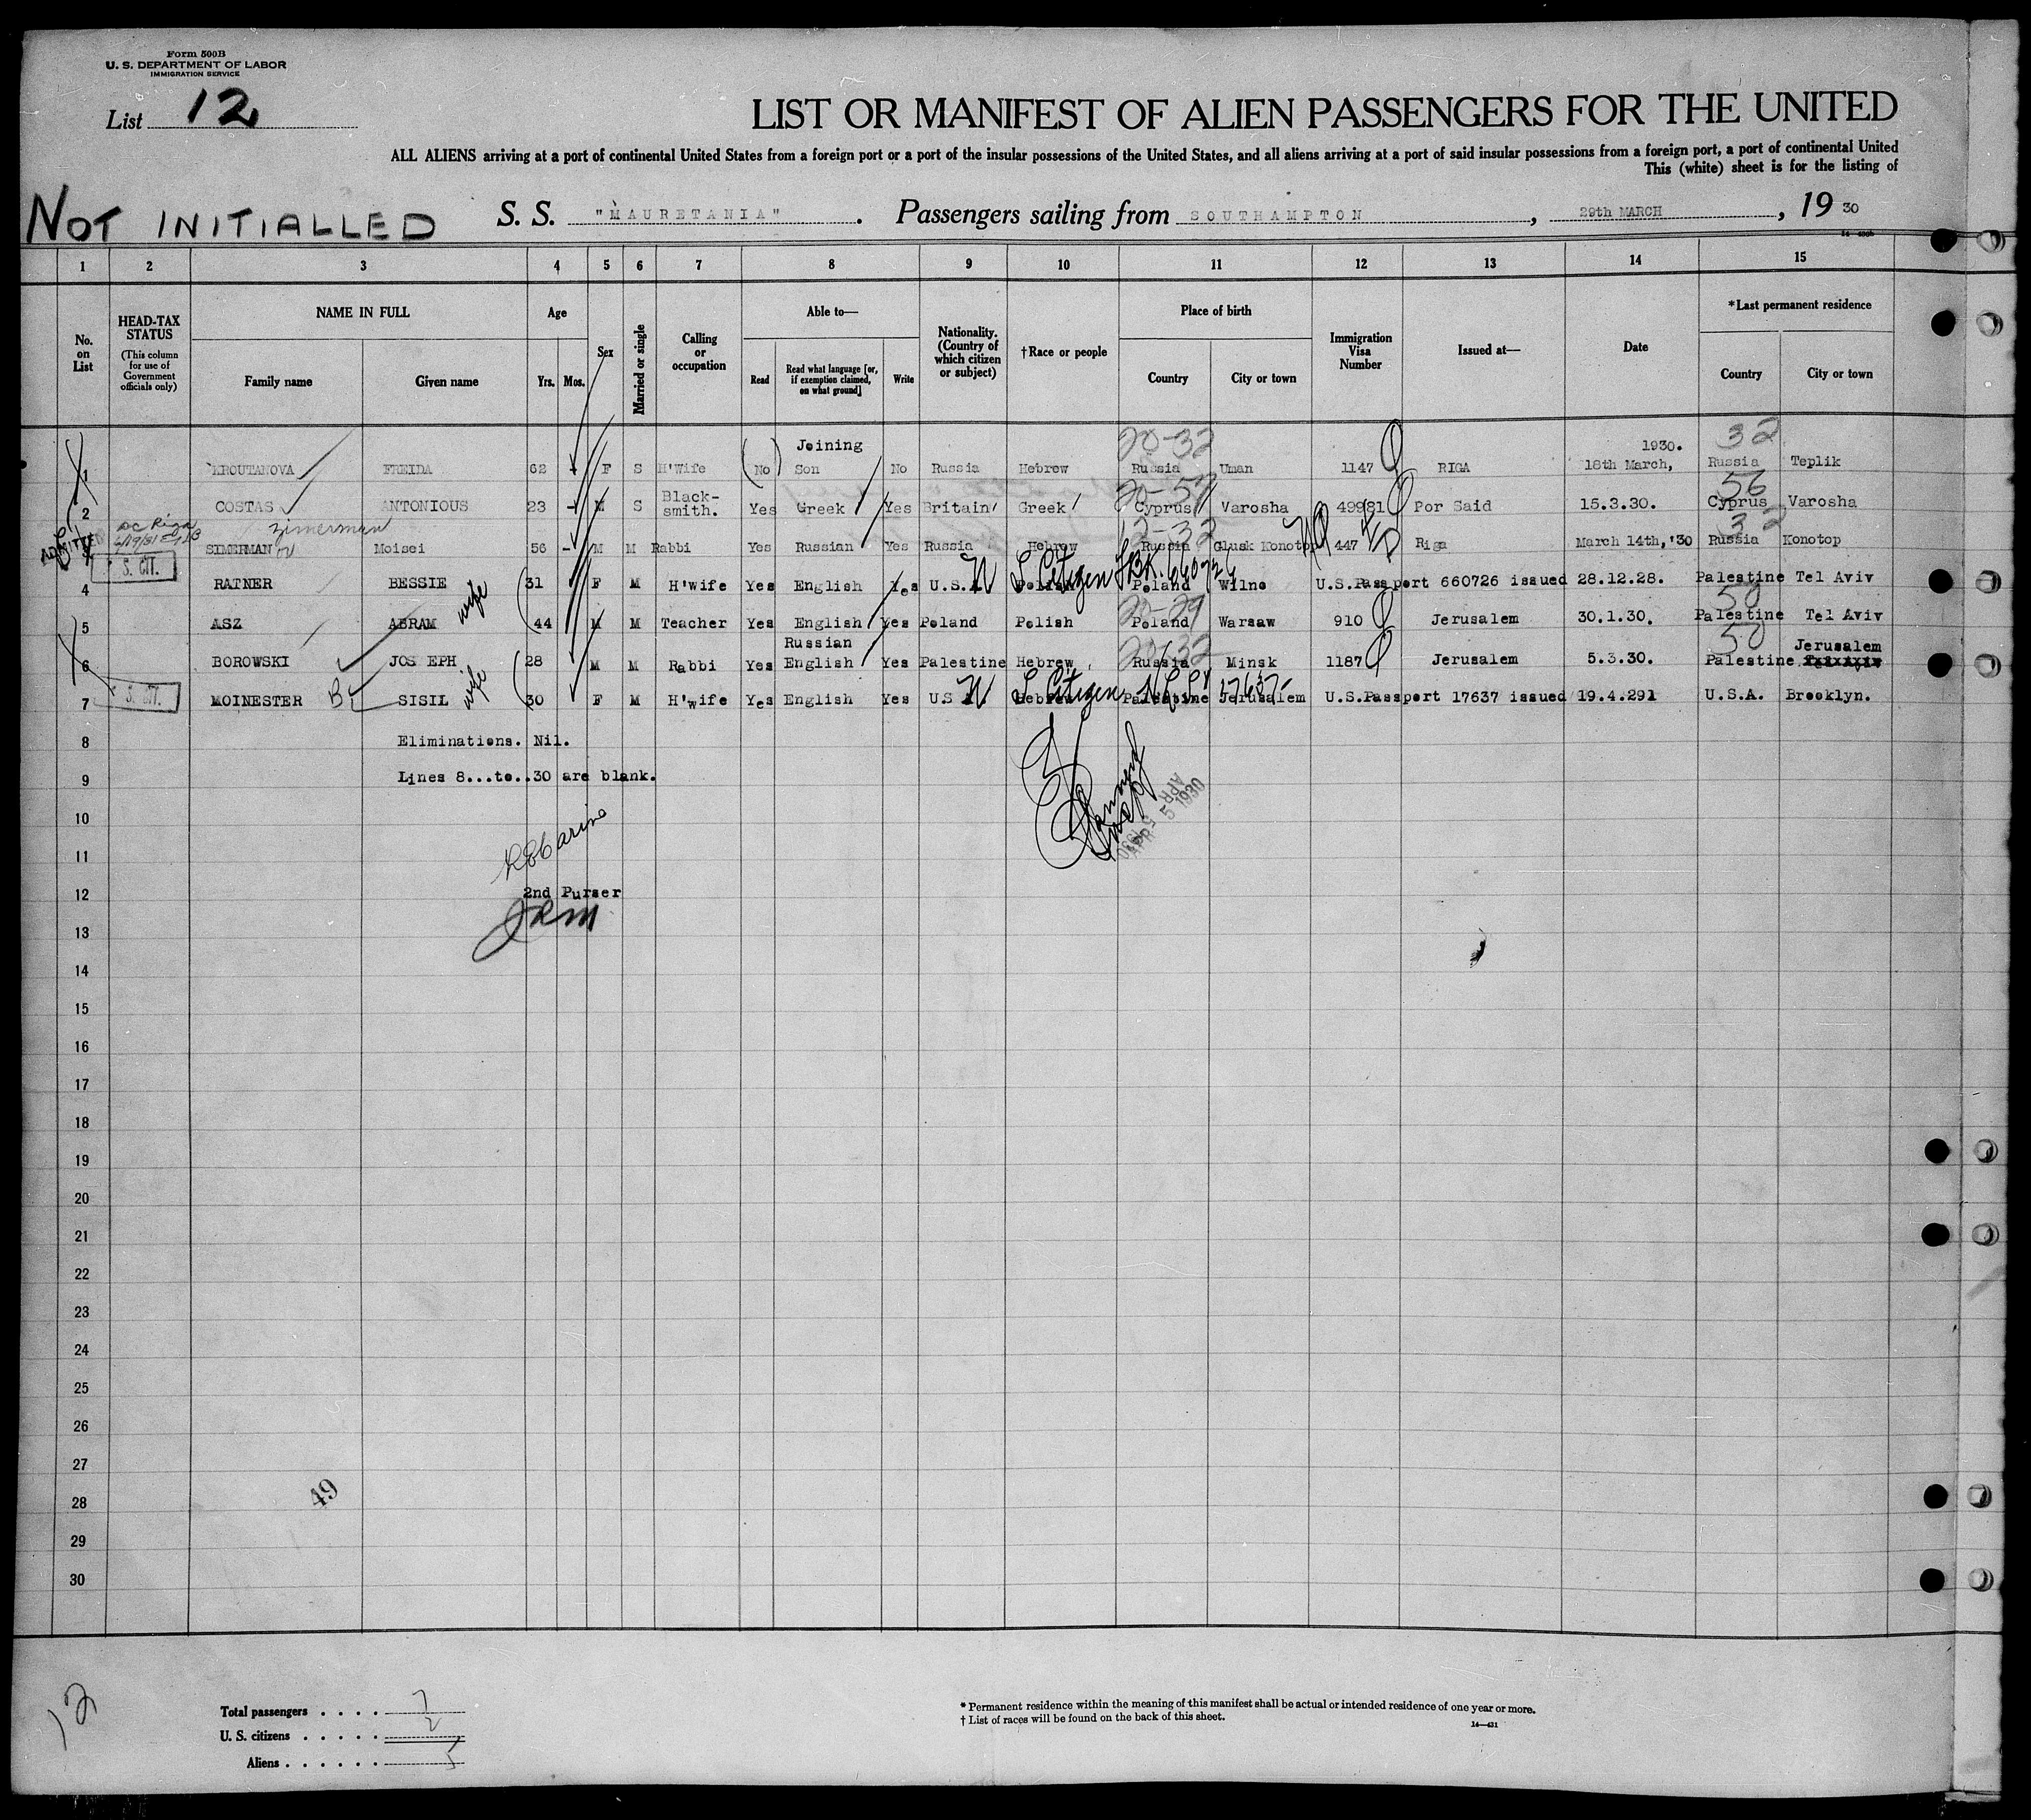 Form 500B
U. S. DEPARTMENT OF LABOR
IMMIGRATION SERVICE
List 12
LIST OR MANIFEST OF ALIEN PASSENGERS FOR THE UNITED
ALL ALIENS arriving at a port of continental United States from a foreign port or a port of the insular possessions of the United States, and all aliens arriving at a port of said insular possessions from a foreign port, a port of continental United
This (white) sheet is for the listing of
NOT INITIALLED
S. S. "MAURETANIA". Passengers sailing from SOUTHAMPTON, 29th MARCH, 19 30
1 2 3 4 5 6 7 8 9 10 11 12 13 14 15
No. on List
HEAD-TAX STATUS (This column for use of Government officials only)
NAME IN FULL
Family name
Given name
Age
Yrs. Mos.
Sex
Married or single
Calling or occupation
Able to—
Read
Read what language [or, if exemption claimed, on what ground]
Write
Nationality. (Country of which citizen or subject)
†Race or people
Place of birth
Country
City or town
Immigration Visa Number
Issued at—
Date
*Last permanent residence
Country
City or town
Joining 20-32 1930. 32
1 KROUTANOVA FREIDA 62 - F S H'Wife (No) Son No Russia Hebrew Russia Uman 1147 RIGA 18th March, Russia Teplik
20-57 56
2 COSTAS ANTONIOUS 23 - M S Black-smith. Yes Greek Yes Britain Greek Cyprus Varosha 49981 Por Said 15.3.30. Cyprus Varosha
Zimerman 12-32 32
ADMITTED
3 SIMERMAN Moisei 56 - M M Rabbi Yes Russian Yes Russia Hebrew Russia Glusk Konotop 447 Riga March 14th,'30 Russia Konotop
S. CIT.
4 RATNER BESSIE wife 31 F M H'wife Yes English Yes U.S.A. Polish Poland Wilno U.S.Passport 660726 issued 28.12.28. Palestine Tel Aviv
Citizen 660726
20-29 50
5 ASZ ABRAM 44 M M Teacher Yes English Yes Poland Polish Poland Warsaw 910 Jerusalem 30.1.30. Palestine Tel Aviv
Russian 20-32 50 Jerusalem
6 BOROWSKI JOSEPH 28 M M Rabbi Yes English Yes Palestine Hebrew Russia Minsk 1187 Jerusalem 5.3.30. Palestine
S. CIT.
7 MOINESTER SISIL wife 30 F M H'wife Yes English Yes U.S.A. Hebrew Palestine Jerusalem U.S.Passport 17637 issued 19.4.291 U.S.A. Brooklyn.
Citizen 17637
8 Eliminations. Nil.
9 Lines 8...to..30 are blank.
10
APR 5 1930
11
12 2nd Purser
13
14
15
16
17
18
19
20
21
22
23
24
25
26
27
28 49
29
30
12
Total passengers . . . . 7
U. S. citizens . . . . . 2
Aliens . . . . . . 5
* Permanent residence within the meaning of this manifest shall be actual or intended residence of one year or more.
† List of races will be found on the back of this sheet.
14—421